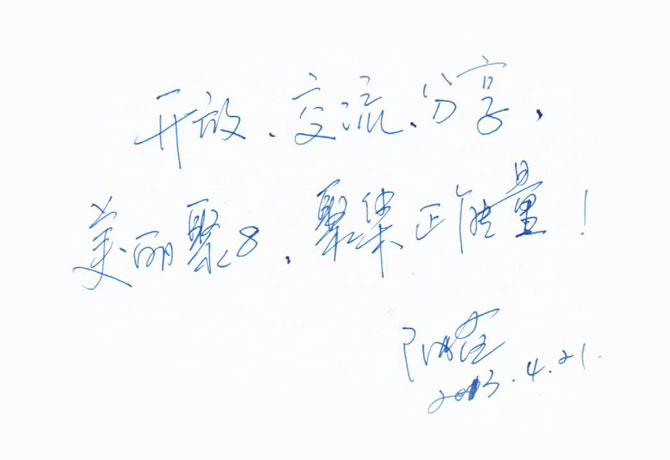 开放、交流、分享，
美丽聚8，聚集正能量！
2013.4.21.